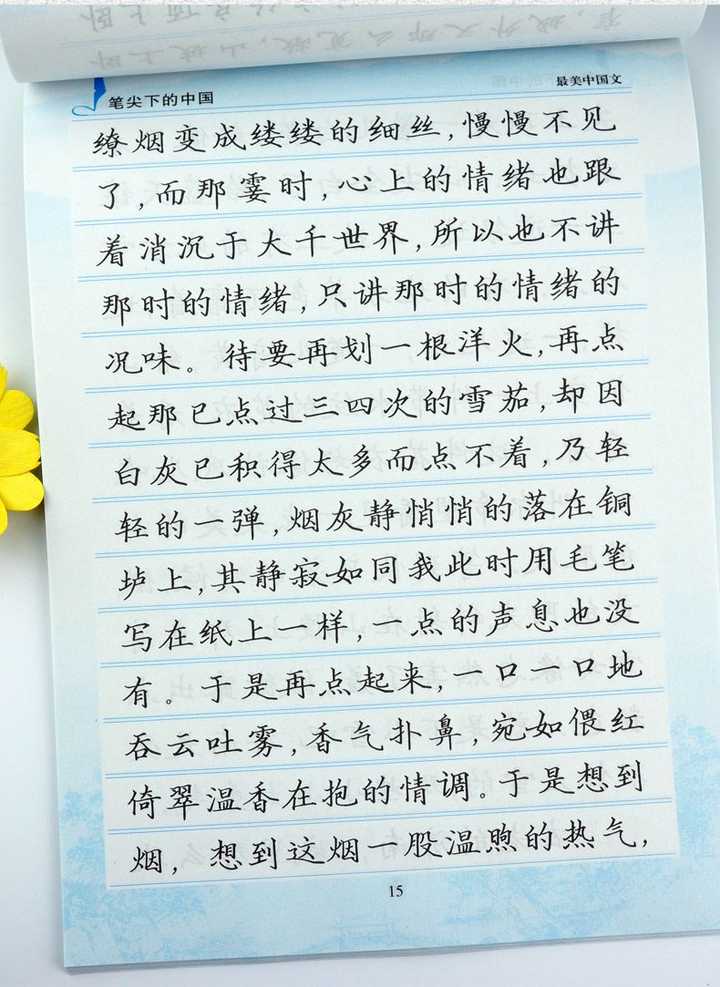 笔尖下的中国
最美中国文
缭烟变成缕缕的细丝,慢慢不见
了,而那霎时,心上的情绪也跟
着消沉于大千世界,所以也不讲
那时的情绪,只讲那时的情绪的
况味。待要再划一根洋火,再点
起那已点过三四次的雪茄,却因
白灰已积得太多而点不着,乃轻
轻的一弹,烟灰静悄悄的落在铜
垆上,其静寂如同我此时用毛笔
写在纸上一样,一点的声息也没
有。于是再点起来,一口一口地
吞云吐雾,香气扑鼻,宛如偎红
倚翠温香在抱的情调。于是想到
烟,想到这烟一股温煦的热气,
15